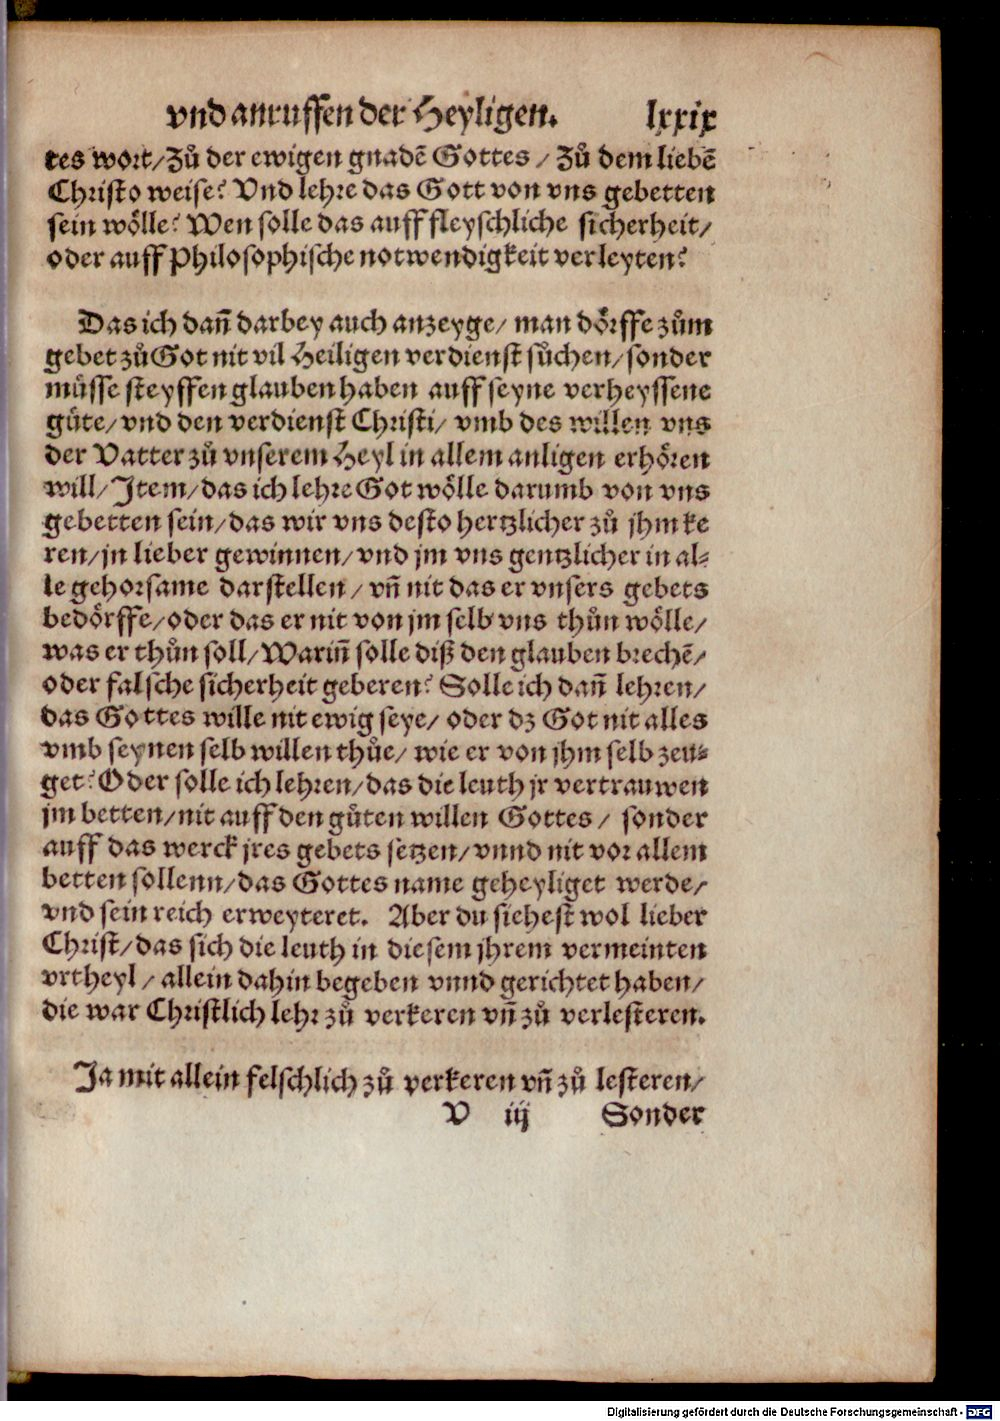 vnd anruffen der Heyligen. lxxix
tes wort/Zů der ewigen gnadē Gottes / Zů dem liebē
Christo weise? Vnd lehre das Gott von vns gebetten
sein wölle? Wen solle das auff fleyschliche sicherheit/
oder auff Philosophische notwendigkeit verleyten?
Das ich dañ darbey auch anzeyge/ man dörffe zům
gebet zů Got nit vil Heiligen verdienst sůchen/sonder
müsse steyffen glauben haben auff seyne verheyssene
güte/vnd den verdienst Christi/ vmb des willen vns
der Vatter zů vnserem Heyl in allem anligen erhören
will/Item/das ich lehre Got wölle darumb von vns
gebetten sein/das wir vns desto hertzlicher zů jhm ke
ren/jn lieber gewinnen/vnd jm vns gentzlicher in al⸗
le gehorsame darstellen / vñ nit das er vnsers gebets
bedörffe/oder das er nit von jm selb vns thůn wölle/
was er thůn soll/Wariñ solle diß den glauben brechē/
oder falsche sicherheit geberen? Solle ich dañ lehren/
das Gottes wille nit ewig seye/ oder dz Got nit alles
vmb seynen selb willen thůe/ wie er von jhm selb zeu⸗
get? Oder solle ich lehren/das die leuth jr vertrauwen
jm betten/nit auff den gůten willen Gottes/ sonder
auff das werck jres gebets setzen/vnnd nit vor allem
betten sollenn/das Gottes name geheyliget werde/
vnd sein reich erweyteret. Aber du siehest wol lieber
Christ/das sich die leuth in diesem jhrem vermeinten
vrtheyl / allein dahin begeben vnnd gerichtet haben/
die war Christlich lehr zů verkeren vñ zů verlesteren.
Ja mit allein felschlich zů verkeren vñ zů lesteren/
V iij Sonder
Digitalisierung gefördert durch die Deutsche Forschungsgemeinschaft - DFG